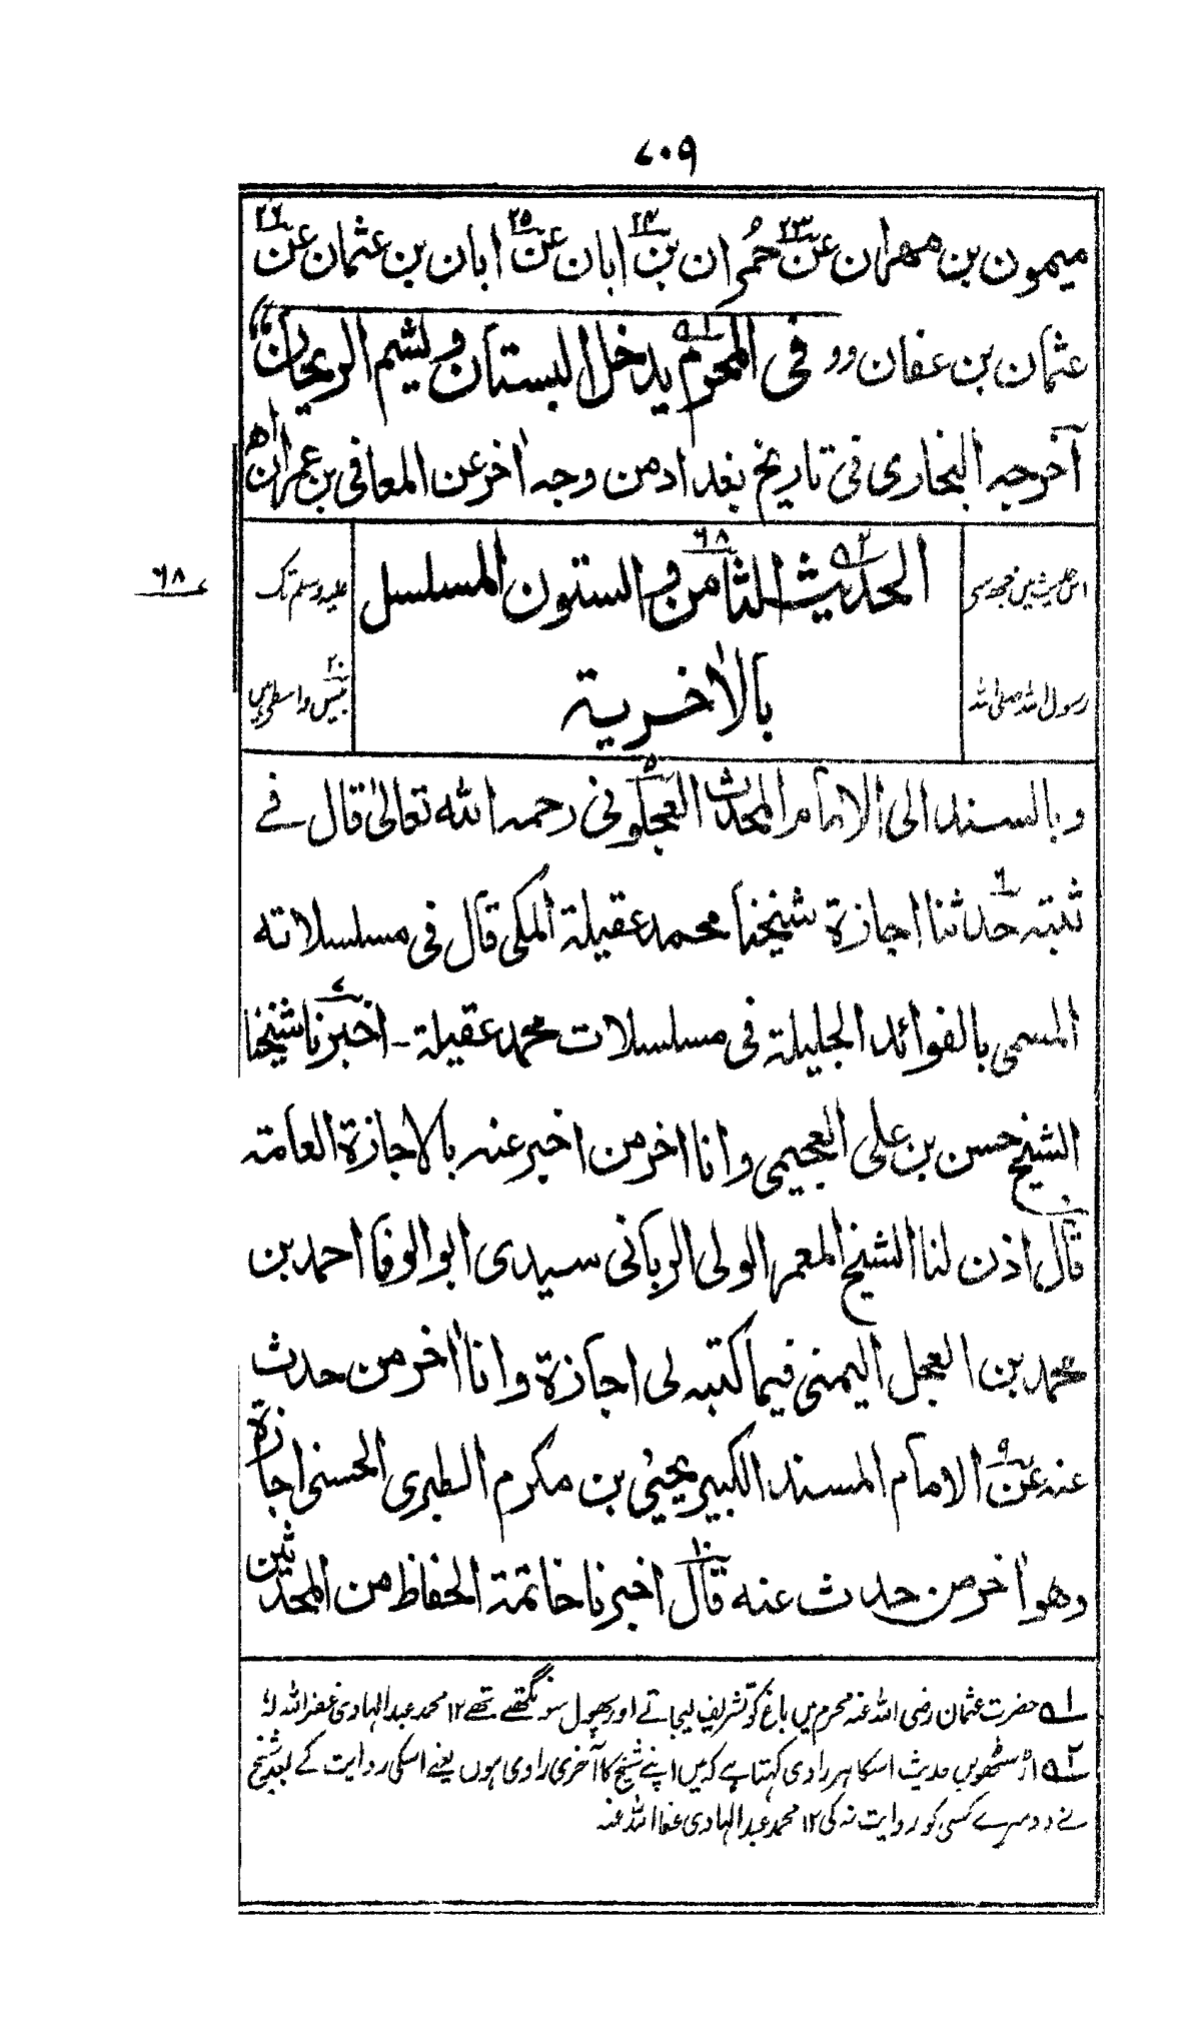 ۷۰۹
میمون بن مهران عن۲۳ حُمران بن۲۴ ابان عن۲۵ ابان بن عثمان عن۲۶
عثمان بن عفان ”فی المحرم۱ه یدخل البستان ویشیم الریحان“
آخرجه البخاری فی تاریخ بغداد من وجه اٰخر عن المعافی بن عمران اه
الحدیث۲ه الثامن۶۸ والستون المسلسل
بالاٰخریة
اس حدیث میں مجھ سے
رسول اللہ صلی اللہ
علیہ وسلم تک
بیس۲۰ واسطے ہیں
۶۸
وبالسند الی الامام المحدث العجلونی۵ رحمه الله تعالیٰ قال فے
ثبته حدثنا۶ اجازة شیخنا محمد عقیلة المکی قال فی مسلسلاته
المسمی بالفوائد الجلیلة فی مسلسلات محمد عقیلة - اخبرنا۷ شیخنا
الشیخ حسن بن علی العجیمی وانا اخر من اخبر عنه بالاجازة العامة
قال۸ اذن لنا الشیخ المعمر الولی الربانی سیدی ابو الوفا احمد بن
محمد بن العجل الیمنی فیما کتبه لی اجازة وانا اٰخر من حدث
عنه عن۹ الامام المسند الکبیر یحیٰی بن مکرم الطبری الحسنی اجازة
وهو اٰخر من حدث عنه قال۱۰ اخبرنا خاتمة الحفاظ من المحدثین
۱ه حضرت عثمان رضی اللہ عنہ محرم میں باغ کو تشریف لیجاتے اور پھول سونگھتے تھے ۱۲ محمد عبد الہادی غفر اللہ لہٗ
۲ه اڑسٹھویں حدیث اسکا ہر راوی کہتا ہے کہ میں اپنے شیخ کا آخری راوی ہوں یعنے اسکی روایت کے بعد شیخ
نے دوسرے کسی کو روایت نہ کی ۱۲ محمد عبد الہادی عفا اللہ عنہ